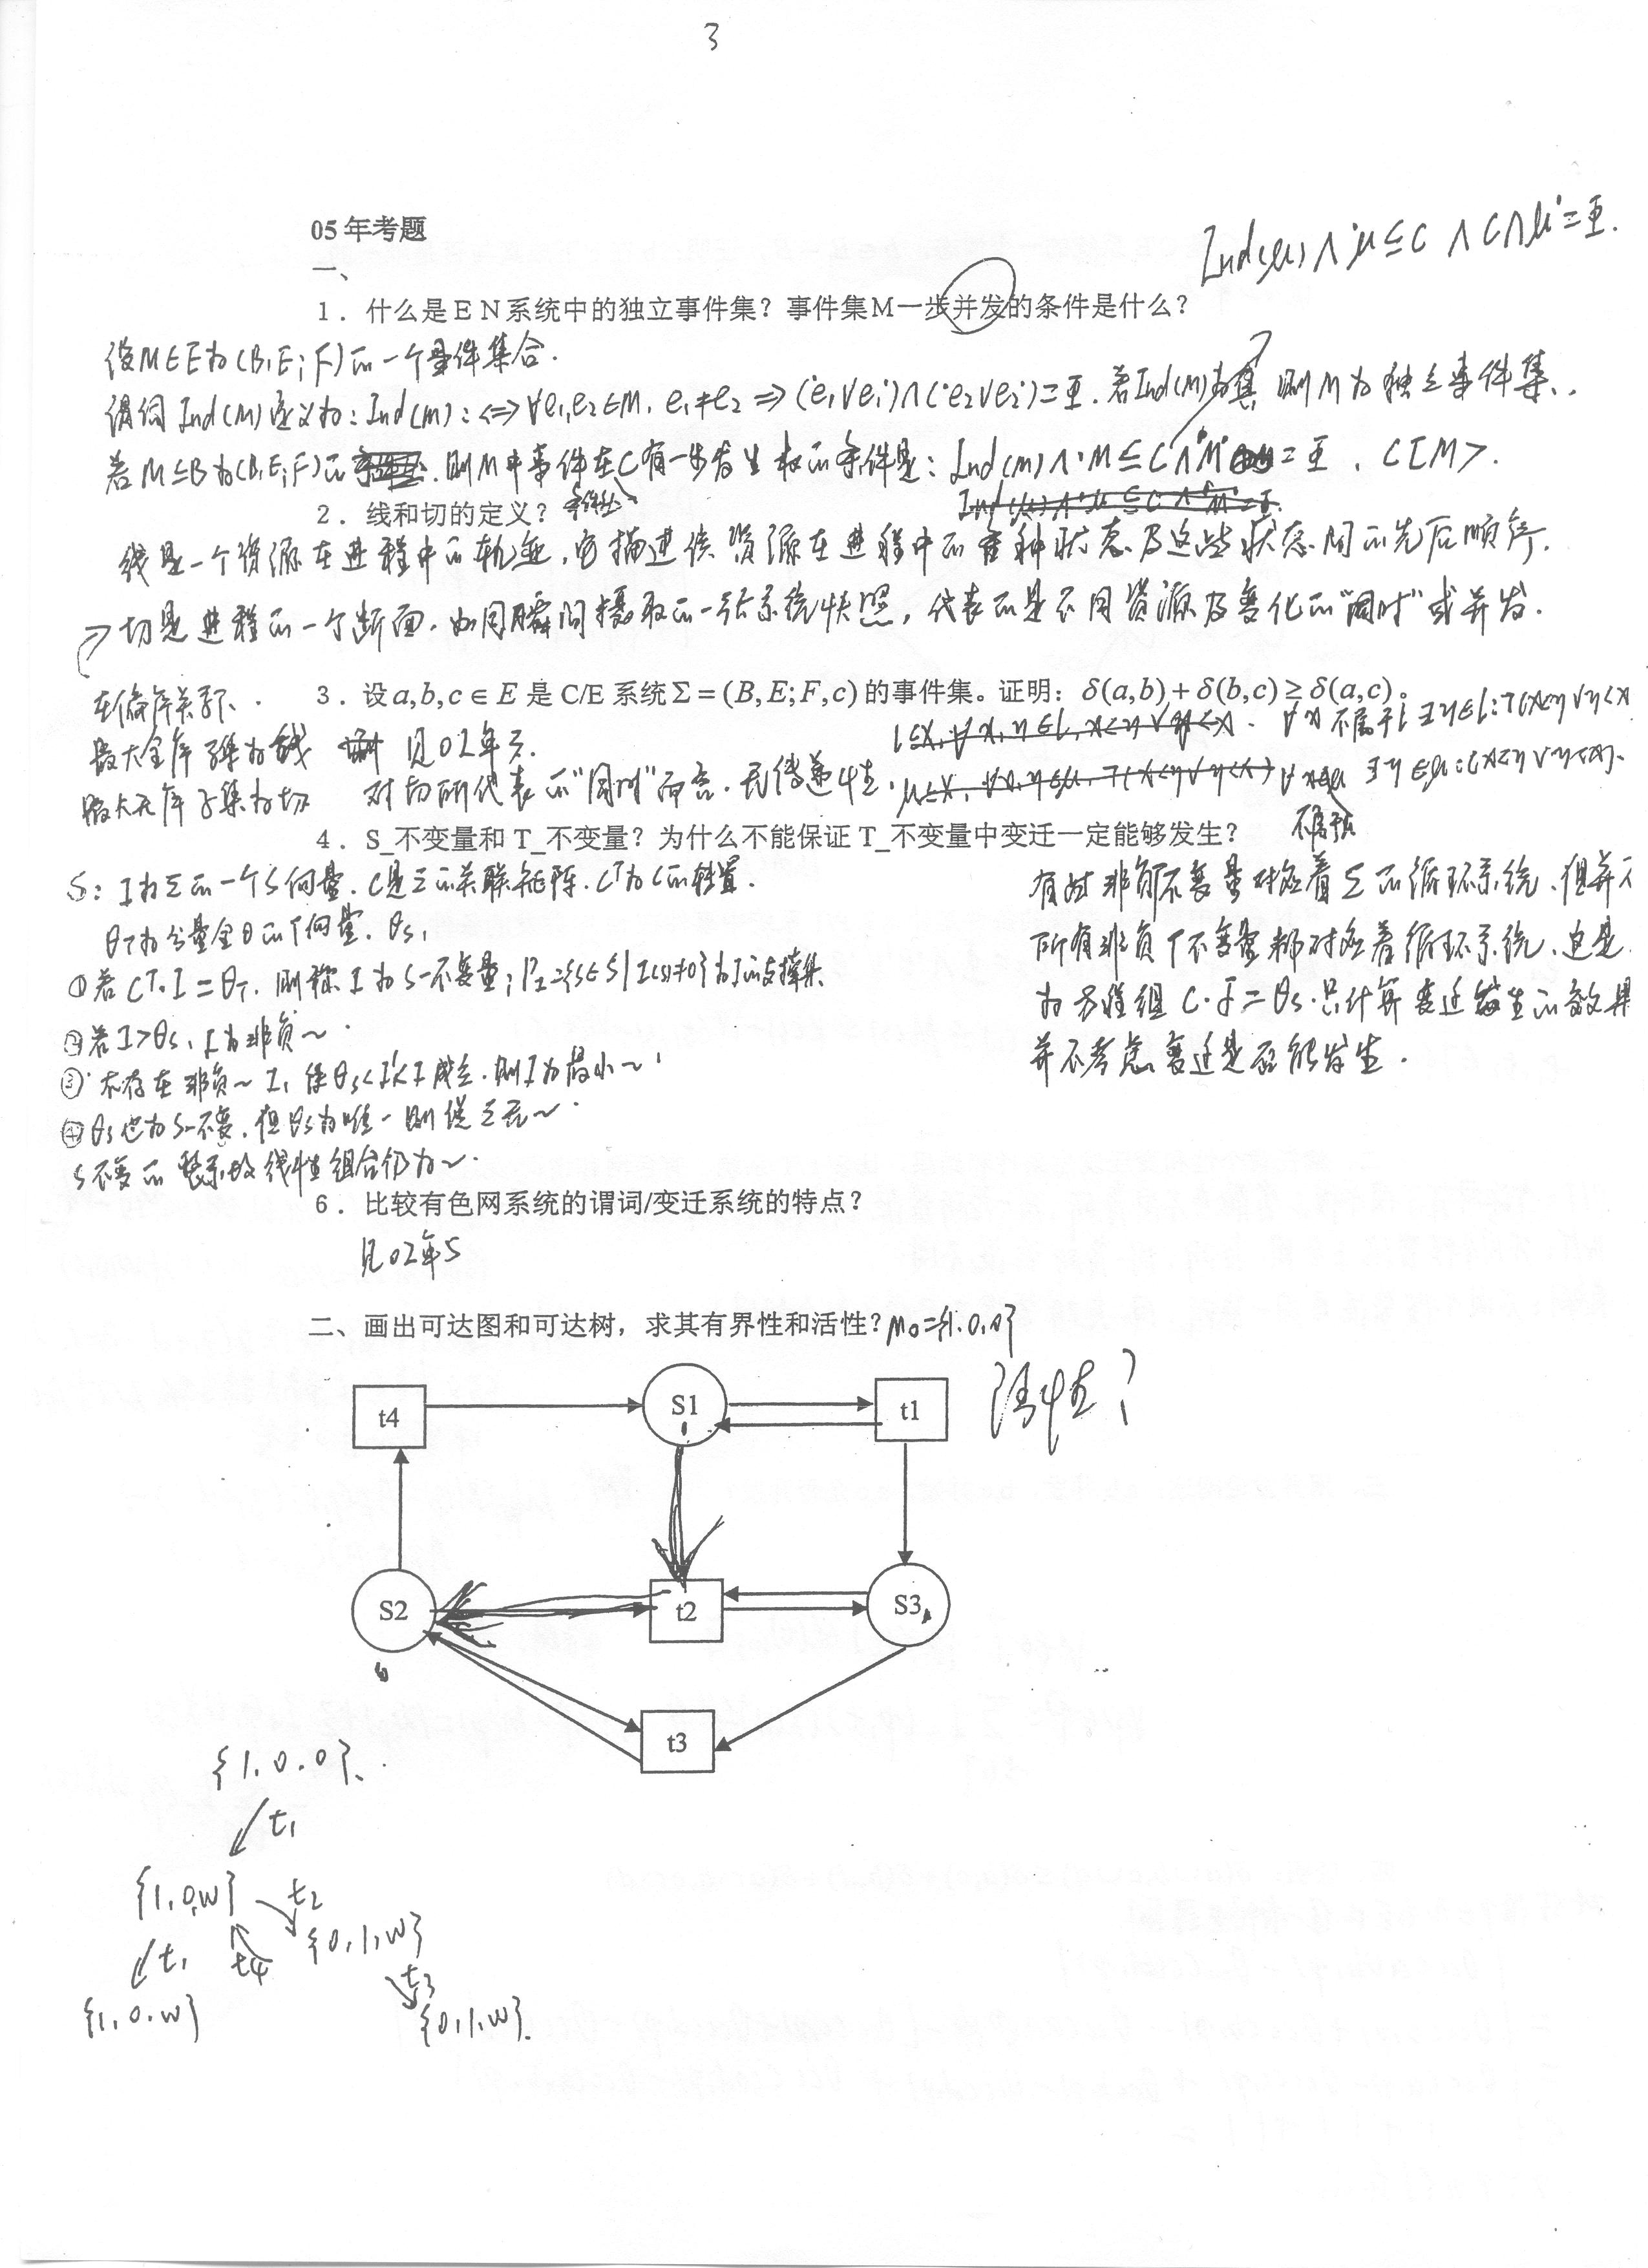 3
05年考题
Ind(μ)∧·μ⊆C ∧ C∩μ·=Φ.
一、
1．什么是EN系统中的独立事件集？事件集M一步并发的条件是什么？
设M∈E为(B,E;F)的一个事件集合.
谓词Ind(M)定义为：Ind(M):<=>∀e1,e2∈M, e1≠e2 => (·e1∨e1·)∧(·e2∨e2·)=Φ. 若Ind(M)为真 则M为独立事件集.
若M⊆B为(B,E;F)的 . 则M中事件在C有一步发生权的条件是：Ind(M)∧·M⊆C∧M· =Φ, C[M>.
2．线和切的定义？
线是一个资源在进程中的轨迹,它描述该资源在进程中的各种状态及这些状态间的先后顺序.
切是进程的一个断面.如同瞬间摄取的一张系统快照,代表的是不同资源及变化的"同时"或并发.
在偏序关系下.
最大全序子集为线
最大无序子集为切
3．设a,b,c∈E 是 C/E 系统Σ=(B,E;F,c) 的事件集。证明：δ(a,b)+δ(b,c)≥δ(a,c)。
见02年
对切所代表的"同时"而言.无传递性.
不属于
4．S_不变量和 T_不变量？为什么不能保证 T_不变量中变迁一定能够发生？
S：I为Σ的一个S向量.C是Σ的关联矩阵.Cᵀ为C的转置.
θT为分量全0的T向量.θs,
①若Cᵀ·I=θT.则称I为S-不变量；PI={s∈S|I(s)≠0}为I的支撑集
②若I>θs,I为非负~.
③不存在非负~I1使θs<I1<I成立.则I为最小~.
④θs也为S-不变,但θs为唯一则说Σ无~.
S不变的 线性组合仍为~.
有时非负不变量对应着Σ的循环系统.但并不
所有非负T不变量都对应着循环系统.这是
为方程组C·J=θs.只计算变迁发生的效果
并不考虑变迁是否能发生.
6．比较有色网系统的谓词/变迁系统的特点？
见02年5
二、画出可达图和可达树，求其有界性和活性？M0={1.0,0}
活性？
t4
S1
t1
S2
t2
S3
t3
{1.0.0}
t1
{1,0,w}
t2
{0,1,w}
t1
t4
t3
{1.0.w}
{0,1,w}.